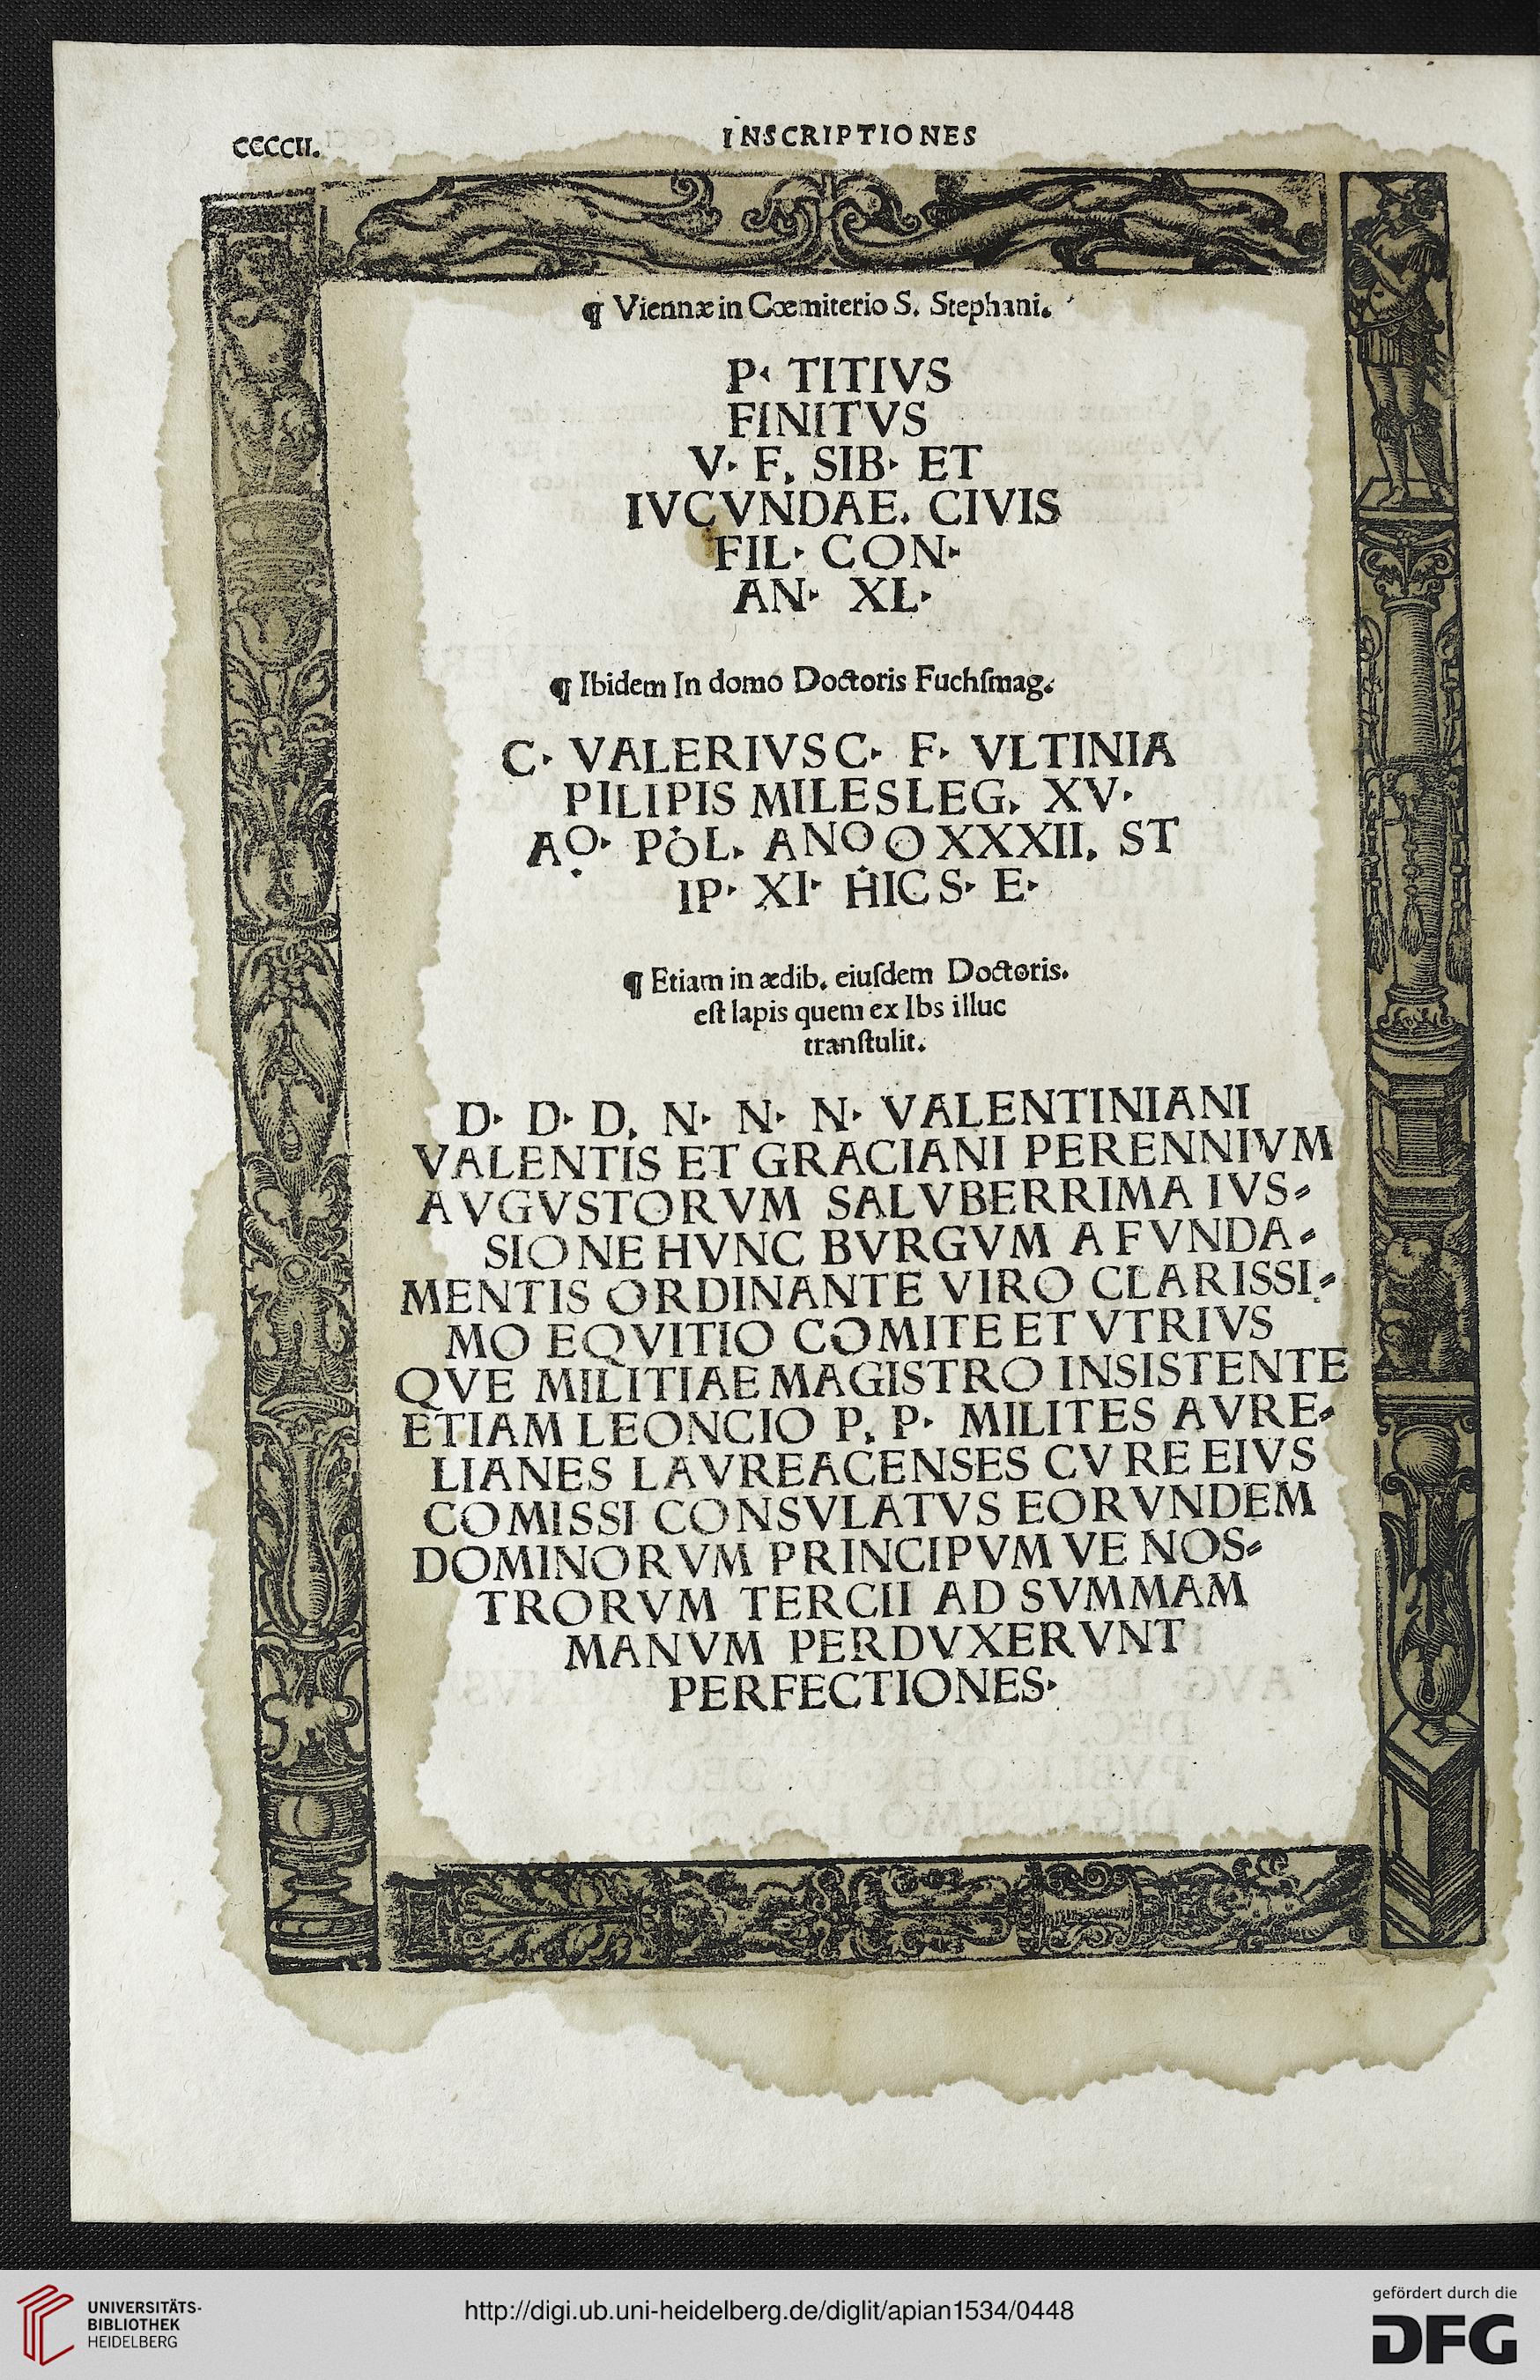 CCCCII.
INSCRIPTIONES
¶ Viennæ in Cœmiterio S. Stephani.
P· TITIVS
FINITVS
V· F. SIB· ET
IVCVNDAE. CIVIS
FIL· CON·
AN· XL·
¶ Ibidem In domo Doctoris Fuchſmag.
C· VALERIVS C· F· VLTINIA
PILIPIS MILES LEG. XV·
AO· POL. ANOO XXXII. ST
IP· XI· HIC S· E·
¶ Etiam in ædib. eiuſdem Doctoris.
eſt lapis quem ex Ibs illuc
tranſtulit.
D· D· D. N· N· N· VALENTINIANI
VALENTIS ET GRACIANI PERENNIVM
AVGVSTORVM SALVBERRIMA IVS⸗
SIONE HVNC BVRGVM A FVNDA⸗
MENTIS ORDINANTE VIRO CLARISSI⸗
MO EQVITIO COMITE ET VTRIVS
QVE MILITIAE MAGISTRO INSISTENTE
ETIAM LEONCIO P. P· MILITES AVRE⸗
LIANES LAVREACENSES CV RE EIVS
COMISSI CONSVLATVS EORVNDEM
DOMINORVM PRINCIPVM VE NOS⸗
TRORVM TERCII AD SVMMAM
MANVM PERDVXERVNT
PERFECTIONES·
UNIVERSITÄTS-
BIBLIOTHEK
HEIDELBERG
http://digi.ub.uni-heidelberg.de/diglit/apian1534/0448
gefördert durch die
DFG